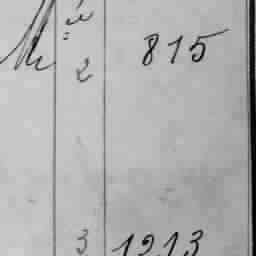 2 815
3 1213